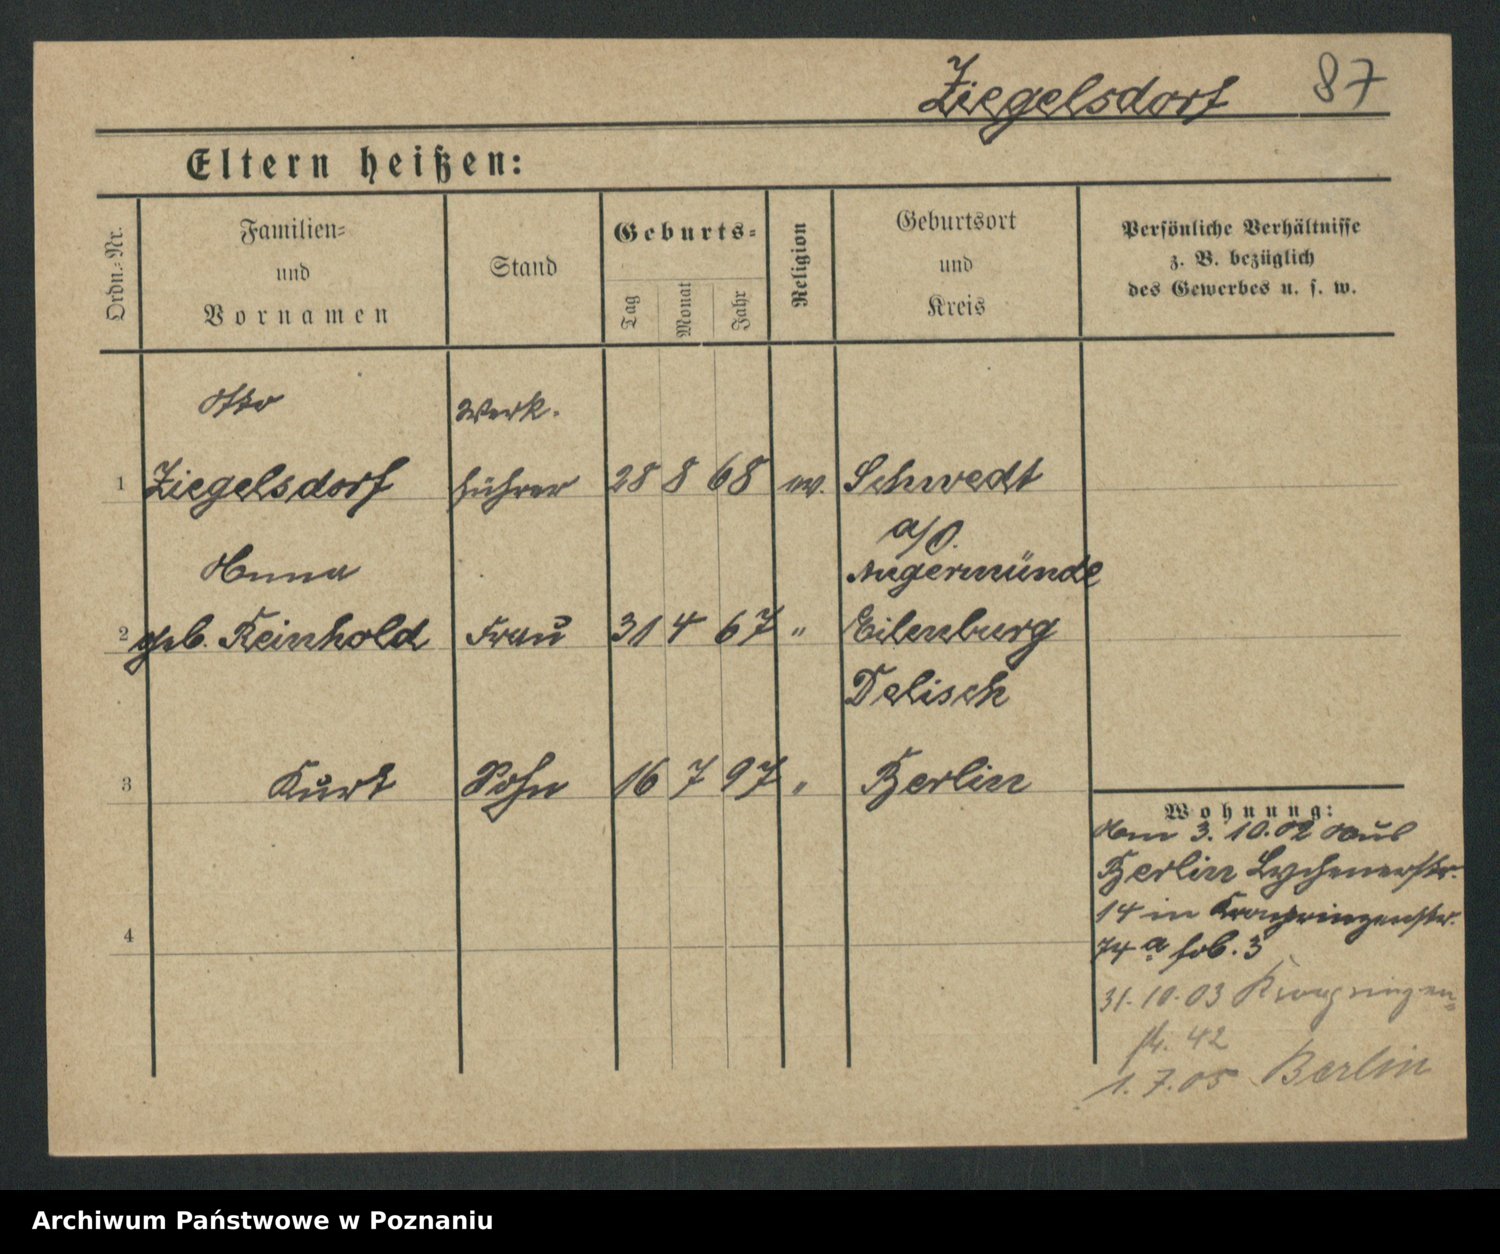 Ziegelsdorf 87
Eltern heißen:
Ordn.-Nr. Familien- und Vornamen Stand Geburts- Tag Monat Jahr Religion Geburtsort und Kreis Persönliche Verhältnisse z. B. bezüglich des Gewerbes u. s. w.
Otto Werk-
1 Ziegelsdorf führer 28 8 68 ev. Schwedt
a/O.
Anna Angermünde
2 geb. Reinhold Frau 31 4 67 " Eilenburg
Delisch
3 Kurt Sohn 16 7 97 " Berlin
Wohnung:
Am 3. 10. 02 aus
Berlin Lychenerstr.
14 in Kronprinzenstr.
74a bei
4
31. 10. 03 Kronprinzen-
str. 42
1. 7. 05 Berlin
Archiwum Państwowe w Poznaniu